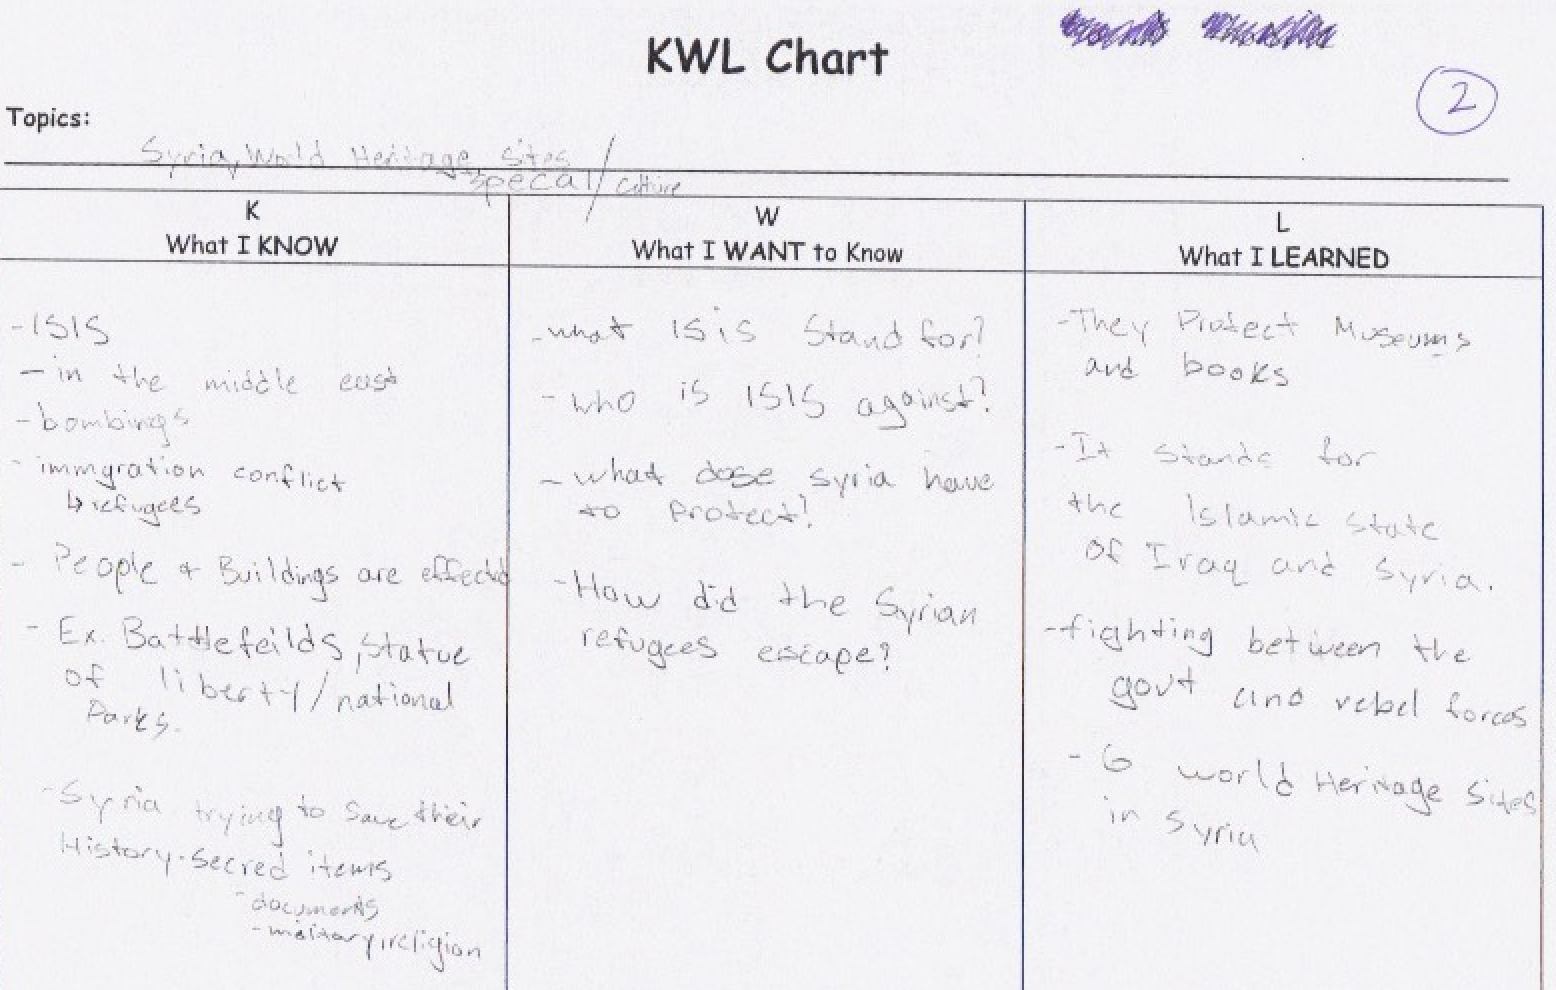 KWL Chart
2
Topics:
Syria, World Heritage Sites /
specal / culture
K
What I KNOW
- ISIS
- in the middle east
- bombings
- immgration conflict
↳ refugees
- People + Buildings are effected
- Ex. Battlefeilds, Statue
of liberty/national
Parks.
- Syria trying to save their
History - Secred items
- documents
- military, religion
W
What I WANT to Know
- what ISis Stand for?
- who is ISIS against?
- what dose syria have
to Protect?
- How did the Syrian
refugees escape?
L
What I LEARNED
- They Protect Museums
and books
- It stands for
the Islamic State
of Iraq and Syria.
- fighting between the
govt and rebel forces
- 6 world Heritage Sites
in Syria